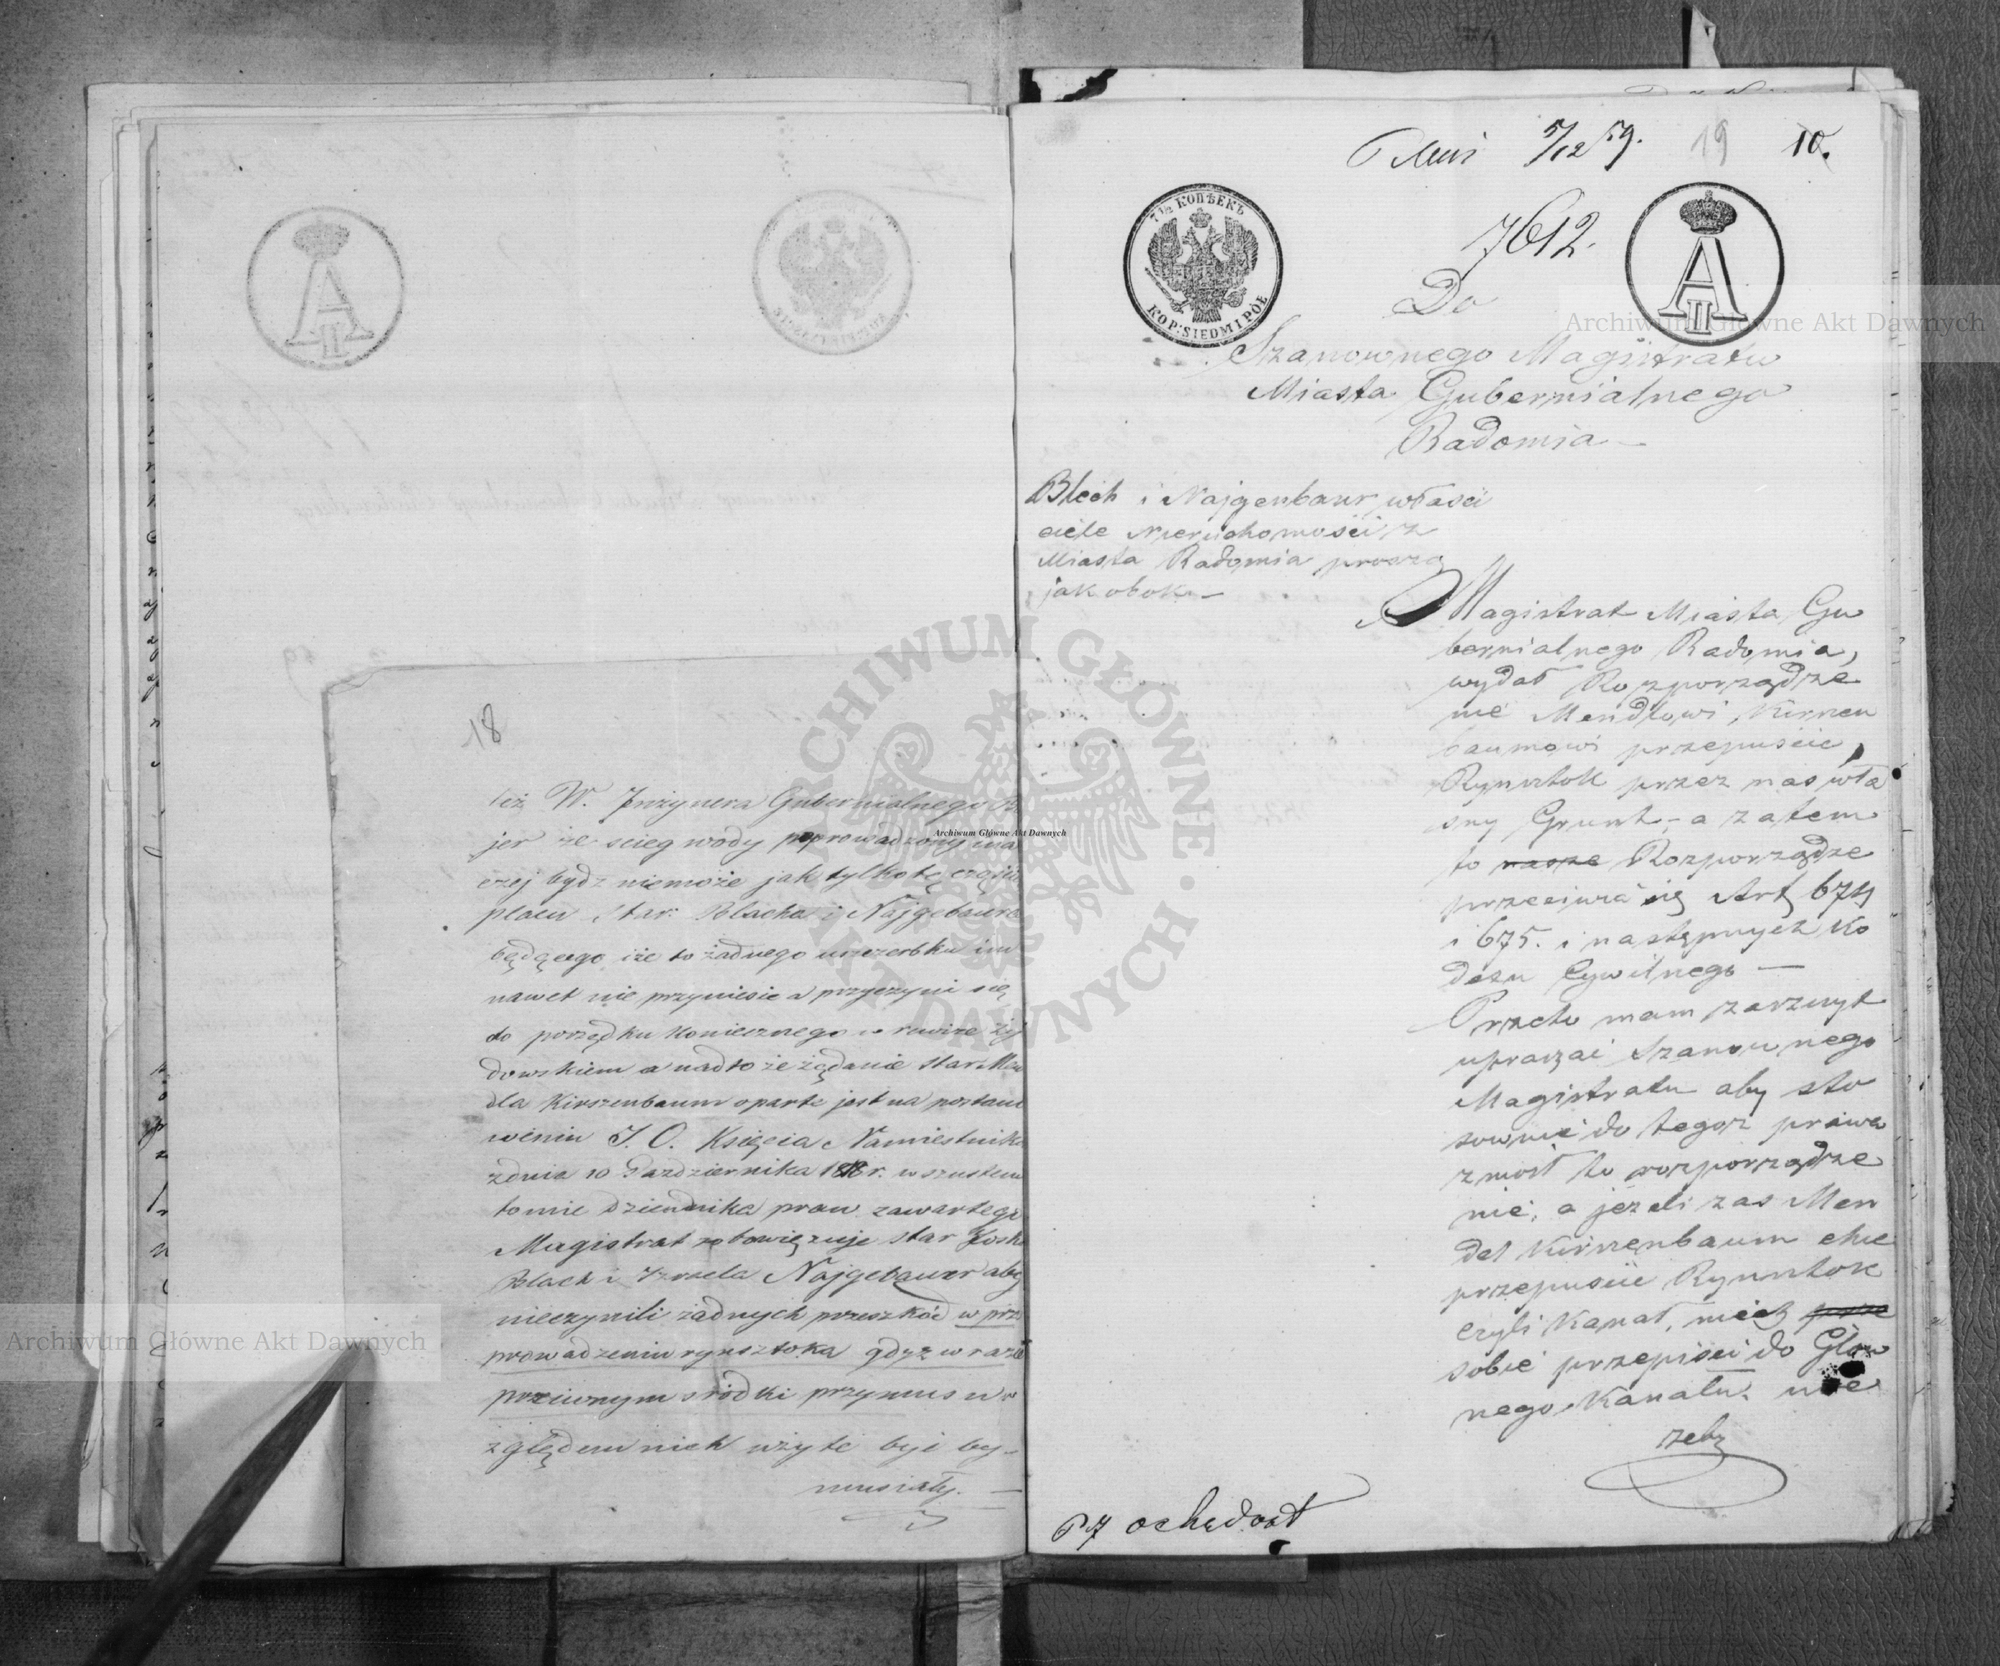 18
też W. Inżyniera Gubernialnego
jer że ścieg wody poprowadzony ina
czej bydz niemoże jak tylko tę częścią
placu Star. Blacha i Najgebaura
będącego iże to żadnego uszczerbku im
nawet nie przyniesie a przyczyni się
do porządku koniecznego w rewirze Ży
dowskiem a nadto że żądanie Star. Men
dla Kirszenbaum oparte jest na postano
wieniu J. O. Księcia Namiestnika
z dnia 10 Października r. w szustem
tomie dziennika praw zawartego
Magistrat zobowięzuje Star. Joska
Blach i Izraela Najgebauer aby
nieczynili żadnych przeszkód w prze
prowadzeniu rynsztoka gdyż w razie
przeciwnym srodki przymusu
względem nich użyte być by
musiały.
5/12 59. 19 10.
7 1/2 КОПѢЕКЪ
КОР: SIEDM I PÓŁ
7612.
A II
Do
Szanownego Magistratu
Miasta Gubernialnego
Radomia
Blech i Najgenbaur właści
ciele Nieruchomości z
Miasta Radomia proszą
jak obok
Magistrat Miasta Gu
bernialnego Radomia,
wydał Rozporządze
nie Mendlowi Kirszen
baumowi przepuście
Rynsztok przez nas wła
sny Grunt, a zatem
to nasze Rozporządze
przeciwia się Art 674
i 675. i następnych Ko
dexu Cywilnego
Przeto mam zaszczyt
upraszać Szanownego
Magistratu aby sto
sownie do tegoż prawa
zniosł to rozporządze
nie, a jeżeli zas Men
del Kirszenbaum chce
przepuście Rynsztok
czyli Kanał, niech prze
sobie przepiści do Głów
nego Kanału. nie
żeby
P Z ochędost
Archiwum Główne Akt Dawnych
Archiwum Główne Akt Dawnych
Archiwum Główne Akt Dawnych
ARCHIWUM GŁÓWNE AKT DAWNYCH